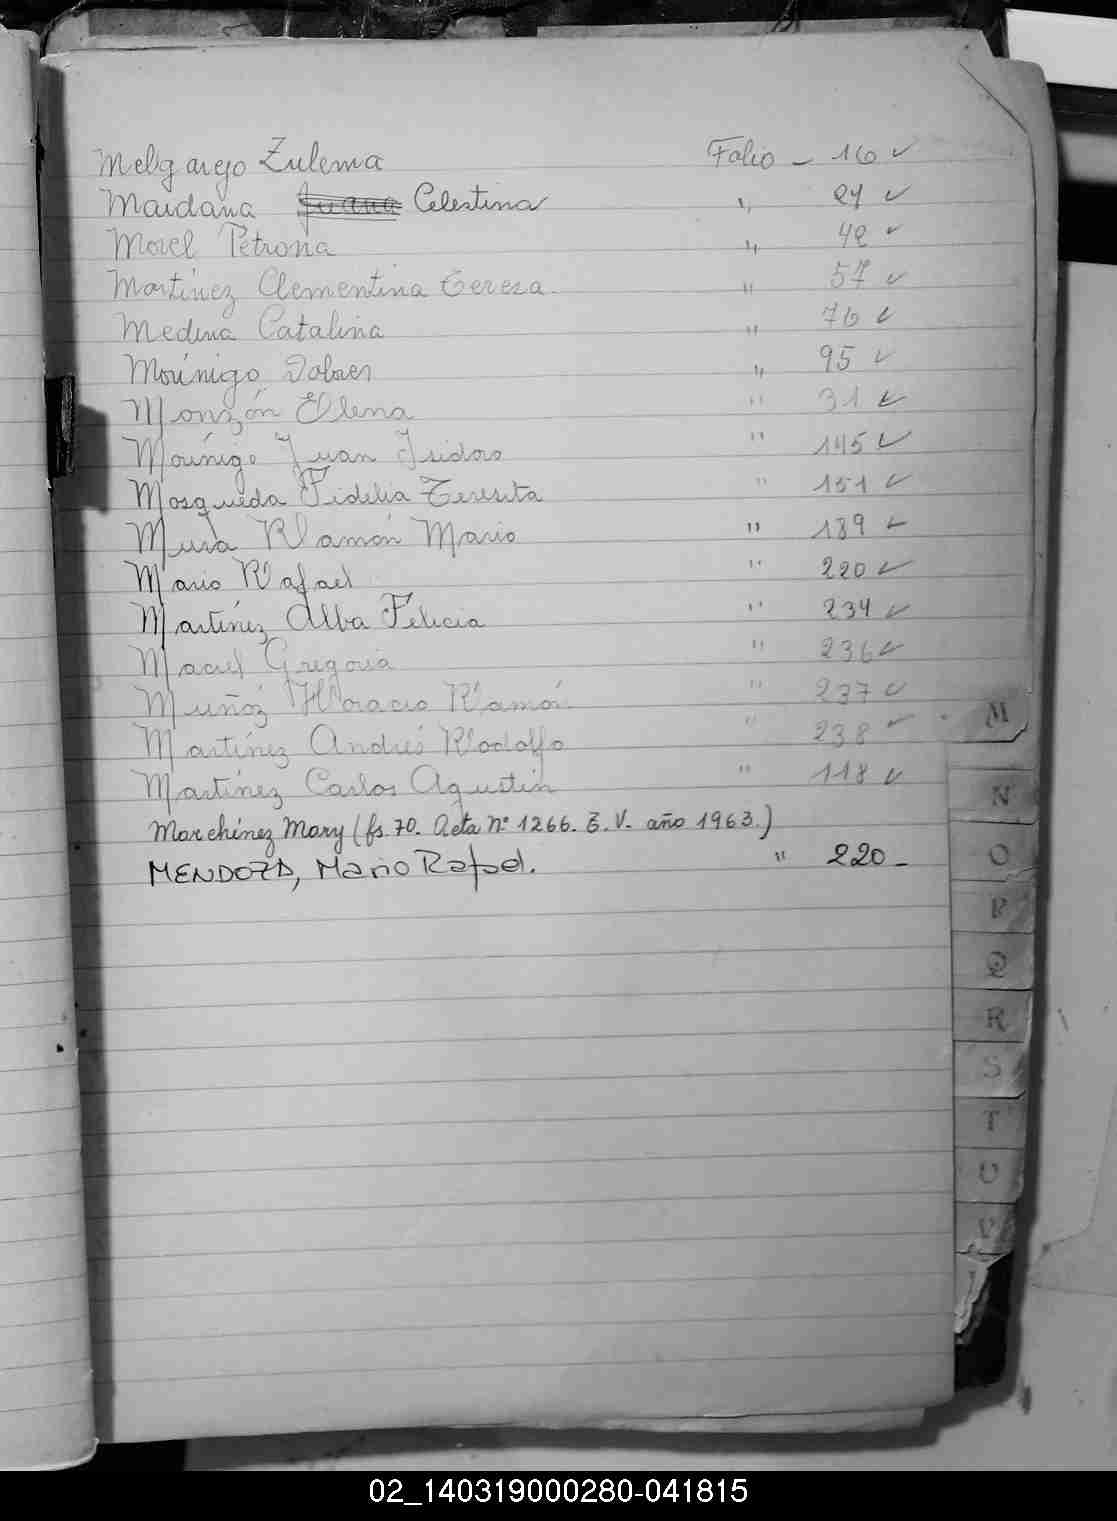 Melgarejo Zulema Folio - 16 ✓
Maidana Juana Celestina " 27 ✓
Morel Petrona " 42 ✓
Martínez Clementina Teresa " 57 ✓
Medina Catalina " 76 ✓
Morínigo Dolores " 95 ✓
Monzón Elena " 31 ✓
Morínigo Juan Isidoro " 145 ✓
Mosqueda Fidelia Teresita " 151 ✓
Ramón Mario " 189 ✓
Mario Rafael " 220 ✓
Martínez Alba Felicia " 234 ✓
Maciel Gregoria " 236 ✓
Muñóz Horacio Ramón " 237 ✓
Martínez Andrés Rodolfo " 238 ✓
Martínez Carlos Agustín " 118 ✓
Marchínez Mary (fs. 70. Acta Nº 1266. T. V. año 1963.)
MENDOZA, Mario Rafael. " 220 -
M
N
O
P
Q
R
S
T
U
V
02_140319000280-041815